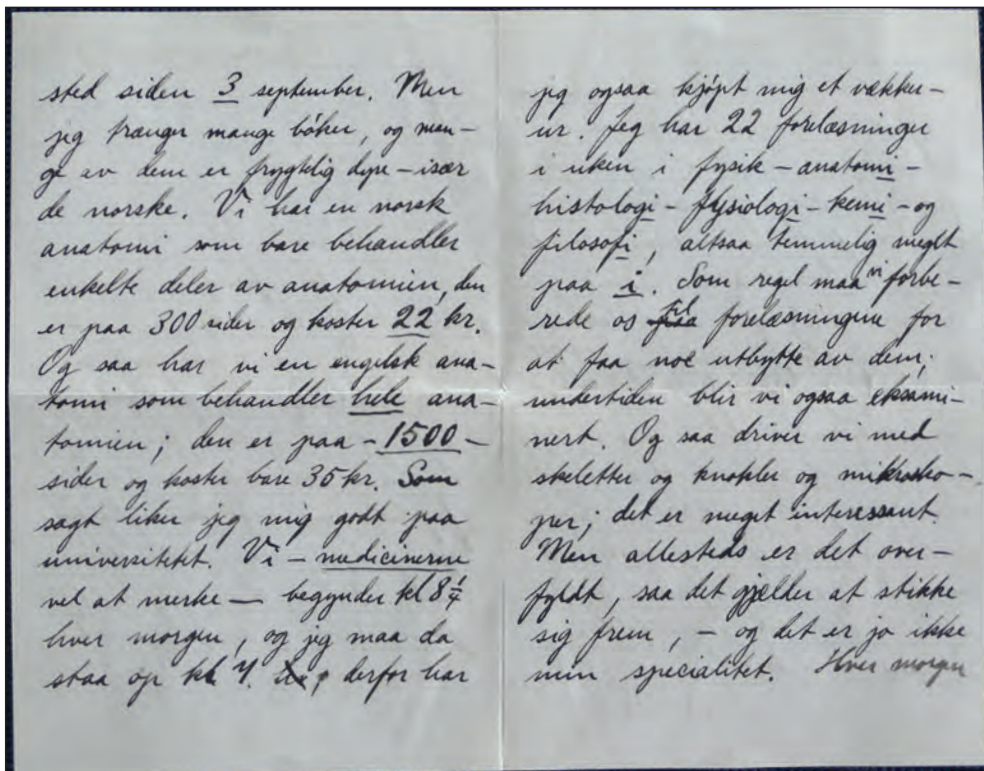 sted siden 3 september. Men
jeg trænger mange bøker, og man-
ge av dem er frygtelig dyre – især
de norske. Vi har en norsk
anatomi som bare behandler
enkelte deler av anatomien, den
er paa 300 sider og koster 22 kr.
Og saa har vi en engelsk ana-
tomi som behandler hele ana-
tomien; den er paa – 1500 –
sider og koster bare 35 kr. Som
sagt liker jeg mig godt paa
universitetet. Vi – medicinerne
vel at merke — begynder kl 8 1/4
hver morgen, og jeg maa da
staa op kl 7. derfor har
jeg ogsaa kjøpt mig et vækker-
ur. Jeg har 22 forelæsninger
i uken i fysik – anatomi –
histologi – fysiologi – kemi – og
filosofi, altsaa temmelig meget
paa i. Som regel maa vi forbe-
rede os til forelæsningene for
at faa noe utbytte av dem;
undertiden blir vi ogsaa eksami-
nert. Og saa driver vi med
skeletter og knokler og mikrosko-
per; det er meget interessant.
Men allesteds er det over-
fyldt, saa det gjælder at stikke
sig frem, – og det er jo ikke
min specialitet. Hver morgen